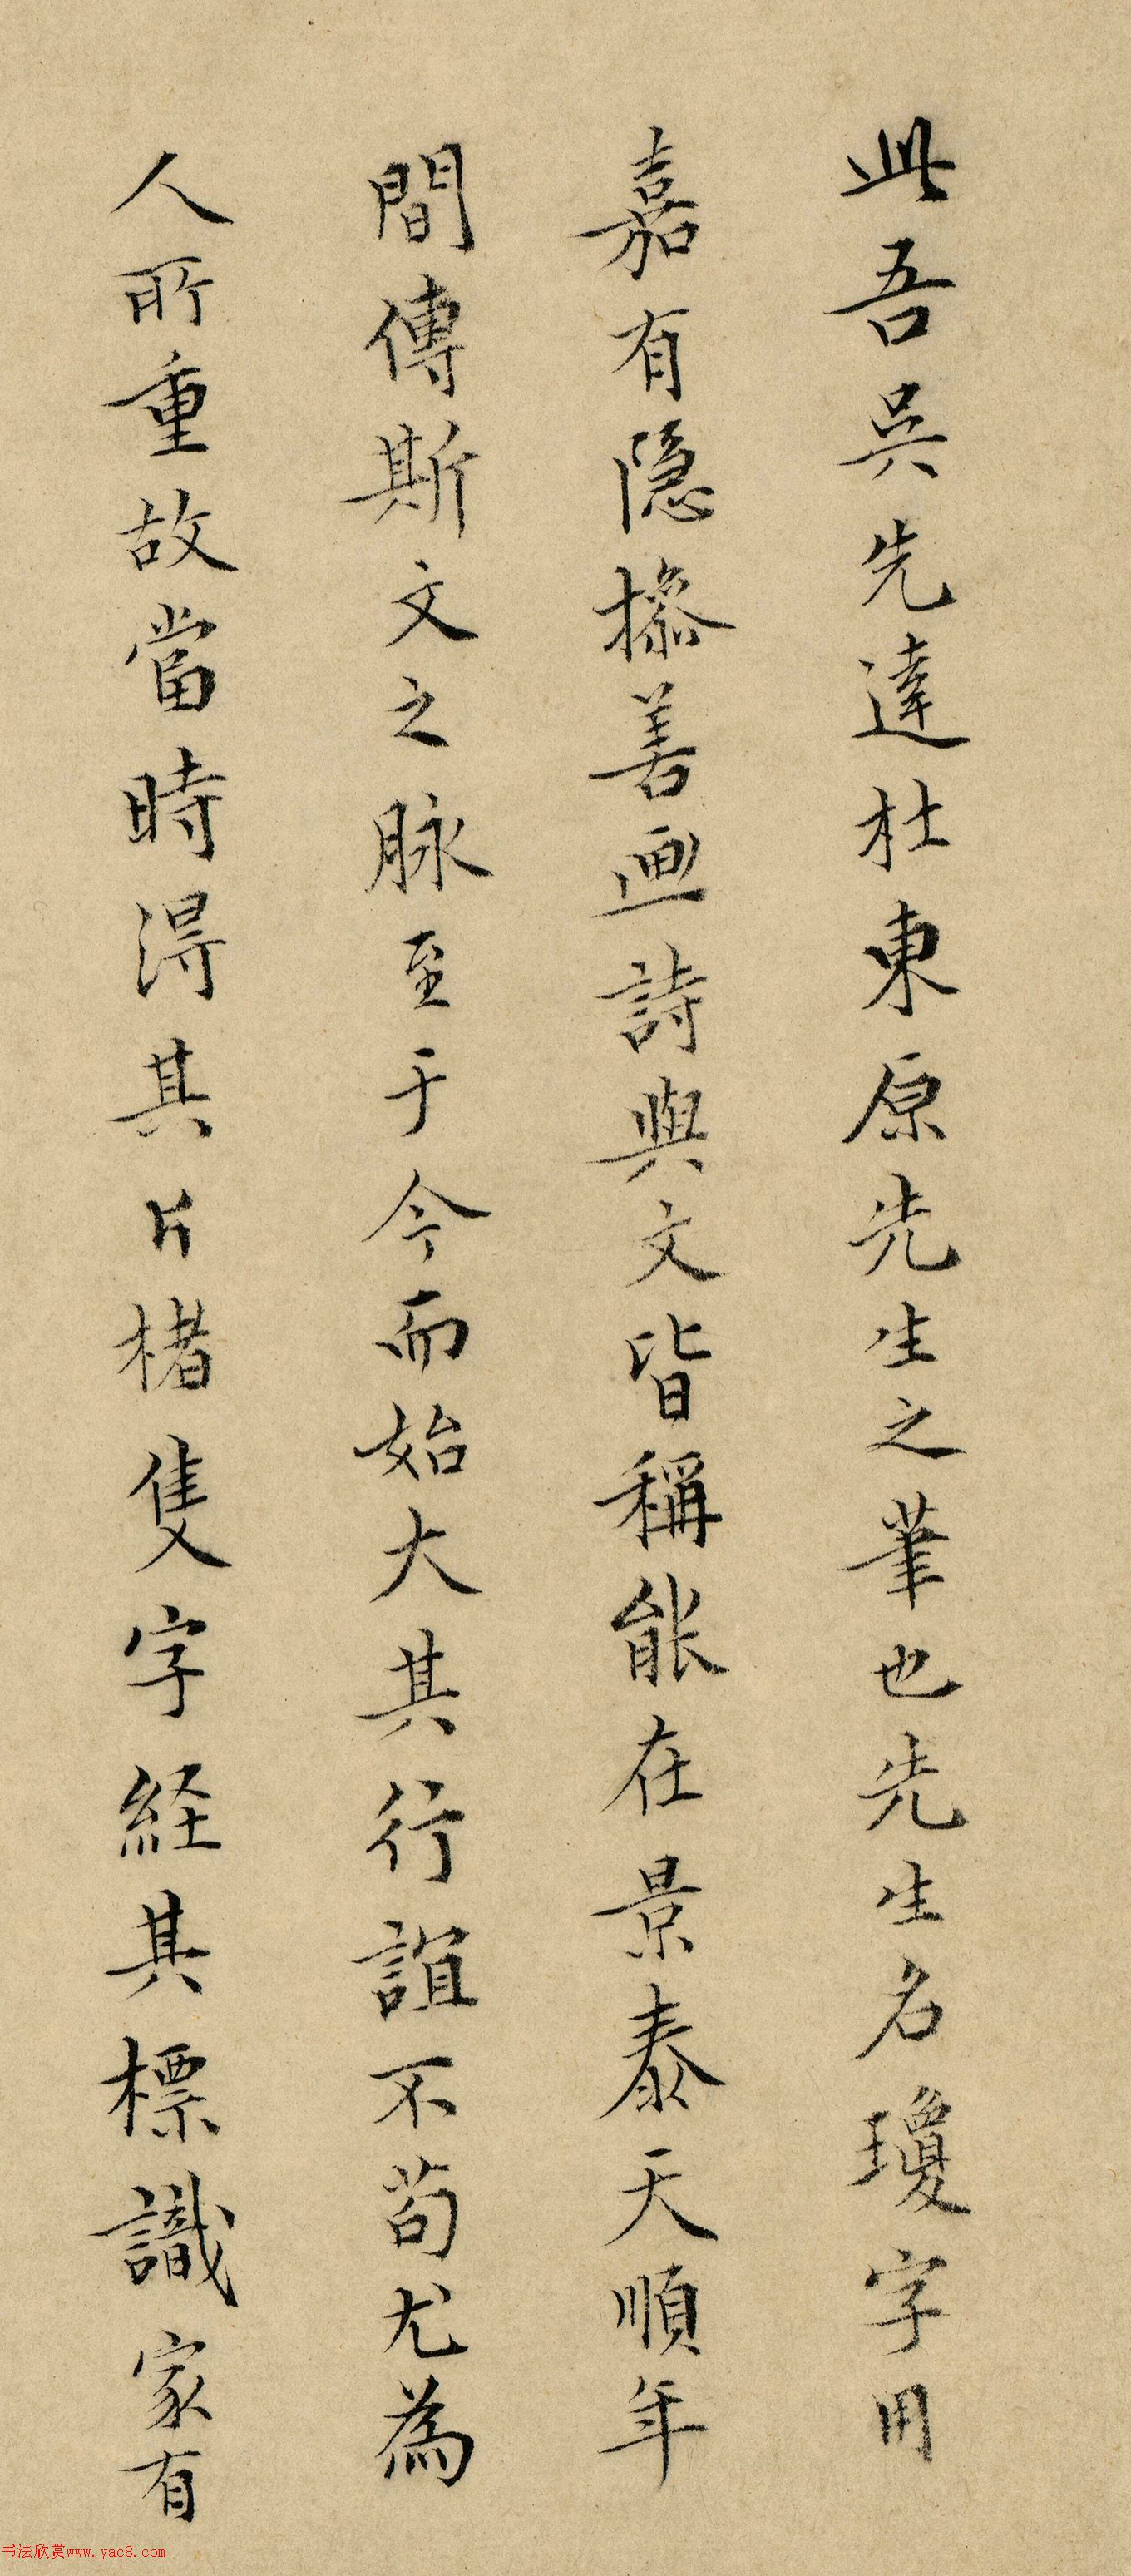 此吾吳先達杜東原先生之筆也先生名瓊字用
嘉有隱操善画詩與文皆稱能在景泰天順年
間傳斯文之脉至于今而始大其行誼不苟尤為
人所重故當時淂其片楮隻字経其標識家有
书法欣赏www.yac8.com